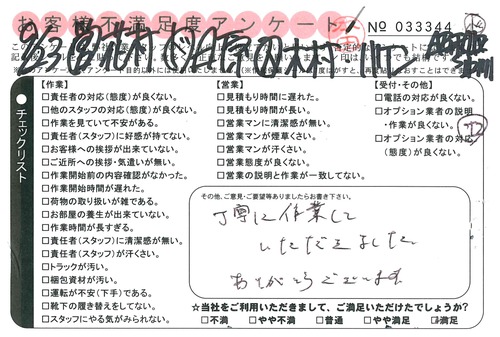 お客様不満足度アンケート
No 033344
チェックリスト
【作業】
□責任者の対応(態度)が良くない。
□他のスタッフの対応(態度)が良くない。
□作業を見ていて不安がある。
□責任者(スタッフ)に好感が持てない。
□お客様への挨拶が出来ていない。
□ご近所への挨拶・気遣いが無い。
□作業開始前の内容確認がなかった。
□作業開始時間が遅れた。
□荷物の取り扱いが雑である。
□お部屋の養生が出来ていない。
□作業時間が長すぎる。
□責任者(スタッフ)に清潔感が無い。
□責任者(スタッフ)が汗くさい。
□トラックが汚い。
□梱包資材が汚い。
□運転が不安(下手)である。
□靴下の履き替えをしてない。
□スタッフにやる気がみられない。
【営業】
□見積もり時間に遅れた。
□見積もり時間が長い。
□営業マンに清潔感が無い。
□営業マンが煙草くさい。
□営業マンが汗くさい。
□営業態度が良くない。
□営業の説明と作業が一致してない。
【受付・その他】
□電話の対応が良くない。
□オプション業者の説明
・作業が良くない。
□オプション業者の対応
(態度)が良くない。
その他、ご意見・ご要望等ありましたらお書き下さい。
丁寧に作業して
いただきました。
ありがとうございます
☆当社をご利用いただきまして、ご満足いただけたでしょうか?
□不満 □やや不満 □普通 □やや満足 □満足